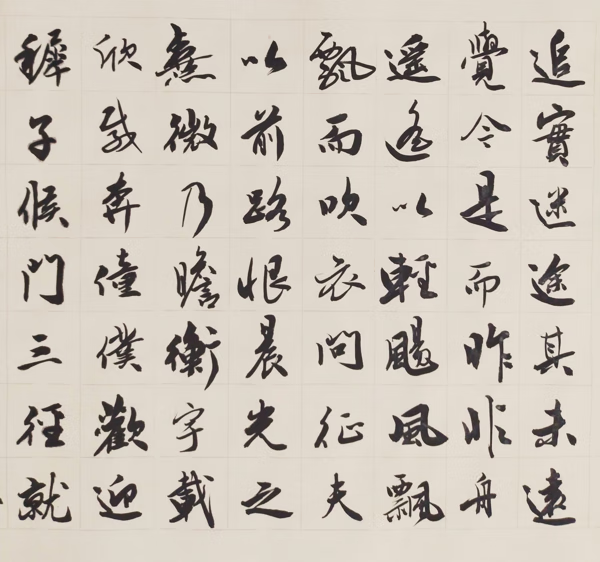 追實迷途其未遠
覺今是而昨非舟
遙遙以輕颺風飄
飄而吹衣問征夫
以前路恨晨光之
熹微乃瞻衡宇載
欣載奔僮僕歡迎
穉子候門三徑就